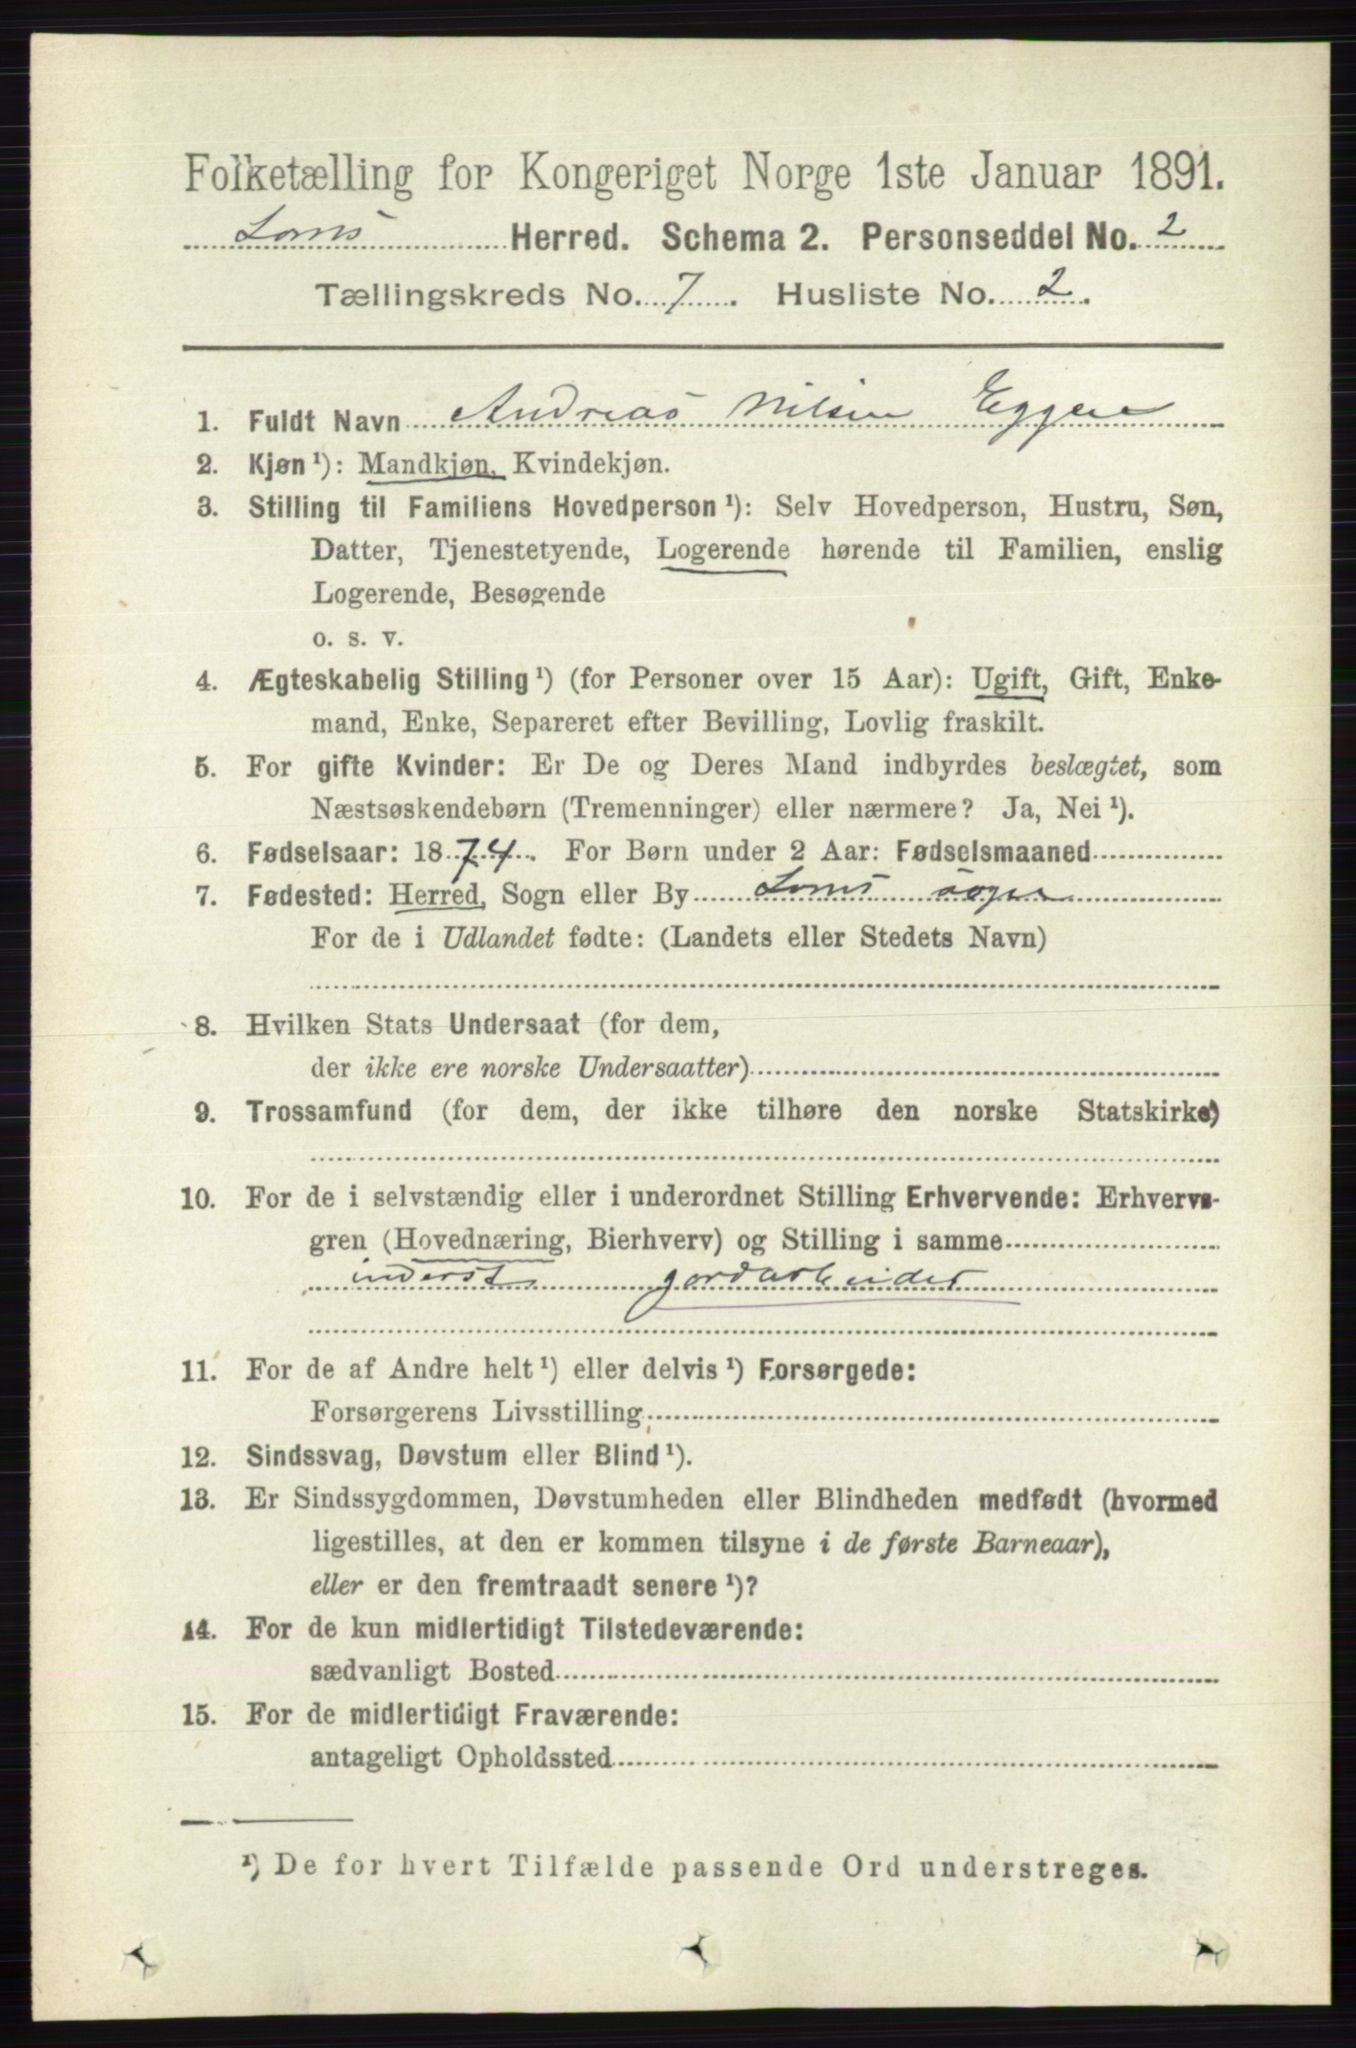 Folketælling for Kongeriget Norge 1ste Januar 1891.
Loms Herred. Schema 2. Personseddel No. 2
Tællingskreds No. 7. Husliste No. 2.
1. Fuldt Navn Andreas Nilsen Eggen
2. Kjøn¹): Mandkjøn, Kvindekjøn.
3. Stilling til Familiens Hovedperson¹): Selv Hovedperson, Hustru, Søn,
Datter, Tjenestetyende, Logerende hørende til Familien, enslig
Logerende, Besøgende
o. s. v.
4. Ægteskabelig Stilling¹) (for Personer over 15 Aar): Ugift, Gift, Enke-
mand, Enke, Separeret efter Bevilling, Lovlig fraskilt.
5. For gifte Kvinder: Er De og Deres Mand indbyrdes beslægtet, som
Næstsøskendebørn (Tremenninger) eller nærmere? Ja, Nei¹).
6. Fødselsaar: 1874. For Børn under 2 Aar: Fødselsmaaned
7. Fødested: Herred, Sogn eller By Loms sogn
For de i Udlandet fødte: (Landets eller Stedets Navn)
8. Hvilken Stats Undersaat (for dem,
der ikke ere norske Undersaatter)
9. Trossamfund (for dem, der ikke tilhøre den norske Statskirke)
10. For de i selvstændig eller i underordnet Stilling Erhvervende: Erhvervs-
gren (Hovednæring, Bierhverv) og Stilling i samme
inderst jordarbeider
11. For de af Andre helt¹) eller delvis¹) Forsørgede:
Forsørgerens Livsstilling
12. Sindssvag, Døvstum eller Blind¹).
13. Er Sindssygdommen, Døvstumheden eller Blindheden medfødt (hvormed
ligestilles, at den er kommen tilsyne i de første Barneaar),
eller er den fremtraadt senere¹)?
14. For de kun midlertidigt Tilstedeværende:
sædvanligt Bosted
15. For de midlertidigt Fraværende:
antageligt Opholdssted
¹) De for hvert Tilfælde passende Ord understreges.